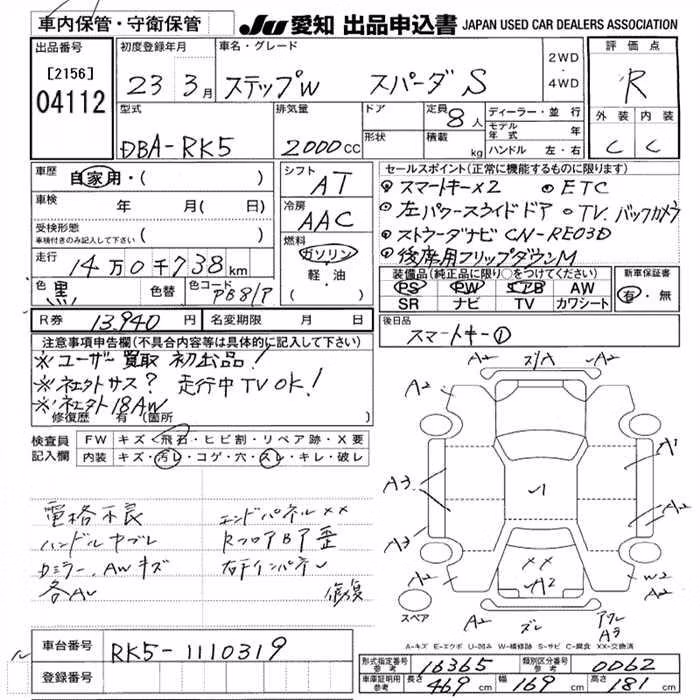 車内保管・守衛保管 JU 愛知 出品申込書 JAPAN USED CAR DEALERS ASSOCIATION
出品番号 初度登録年月 車名・グレード 2WD・4WD 評価点
[2156] 04112 23 3月 ステップW スパーダ S R
型式 排気量 ドア 定員 8人 ディーラー・並行 外装 内装
形状 積載 kg モデル年式 年
DBA-RK5 2000cc ハンドル 左・右 C C
車歴 自家用・( ) シフト AT セールスポイント(正常に機能するものに限ります)
車検 年 月( 日) 冷房 AAC スマートキー×2 ETC
左パワースライドドア TV.バックカメラ
受検形態 車検付きのみ記入して下さい ( ) 燃料 ガソリン・軽・油 ( ) ストラーダナビ CN-RE03D
走行 14万0千738km 後席用フリップダウンM
装備品(純正品に限り○をつけてください) 新車保証書
色 黒 色替 色コード PB81P PS PW エアB AW 有・無
SR ナビ TV カワシート
R券 13,940円 名変期限 月 日 後日品 スマートキー①
注意事項申告欄(不具合内容等は具体的に記入して下さい)
※ユーザー買取 初出品!
※社外サス? 走行中TV OK!
※社外18AW
修復歴 有 (箇所 )
検査員記入欄 FW キズ・飛石・ヒビ割・リペア跡・X要
内装 キズ・汚レ・コゲ・穴・スレ・キレ・破レ
電格不良 エンドパネル××
ハンドル中ブレ RフロアBア歪
Dミラー、AWキズ 右Fインパネレ
各AU 修復
A2 ス/A A2
A2 A2
A3 A1
A3 A2
A2 W2 A2
1
×× A2
スペア ズレ アクレ A3
A-キズ E-エクボ U-凹み W-補修跡 S-サビ C-腐食 XX-交換済
車台番号 RK5-1110319
登録番号
形式指定番号 参考 16365 類別区分番号 参考 0062
車庫証明用 参考 長さ 469cm 幅 169cm 高さ 181cm